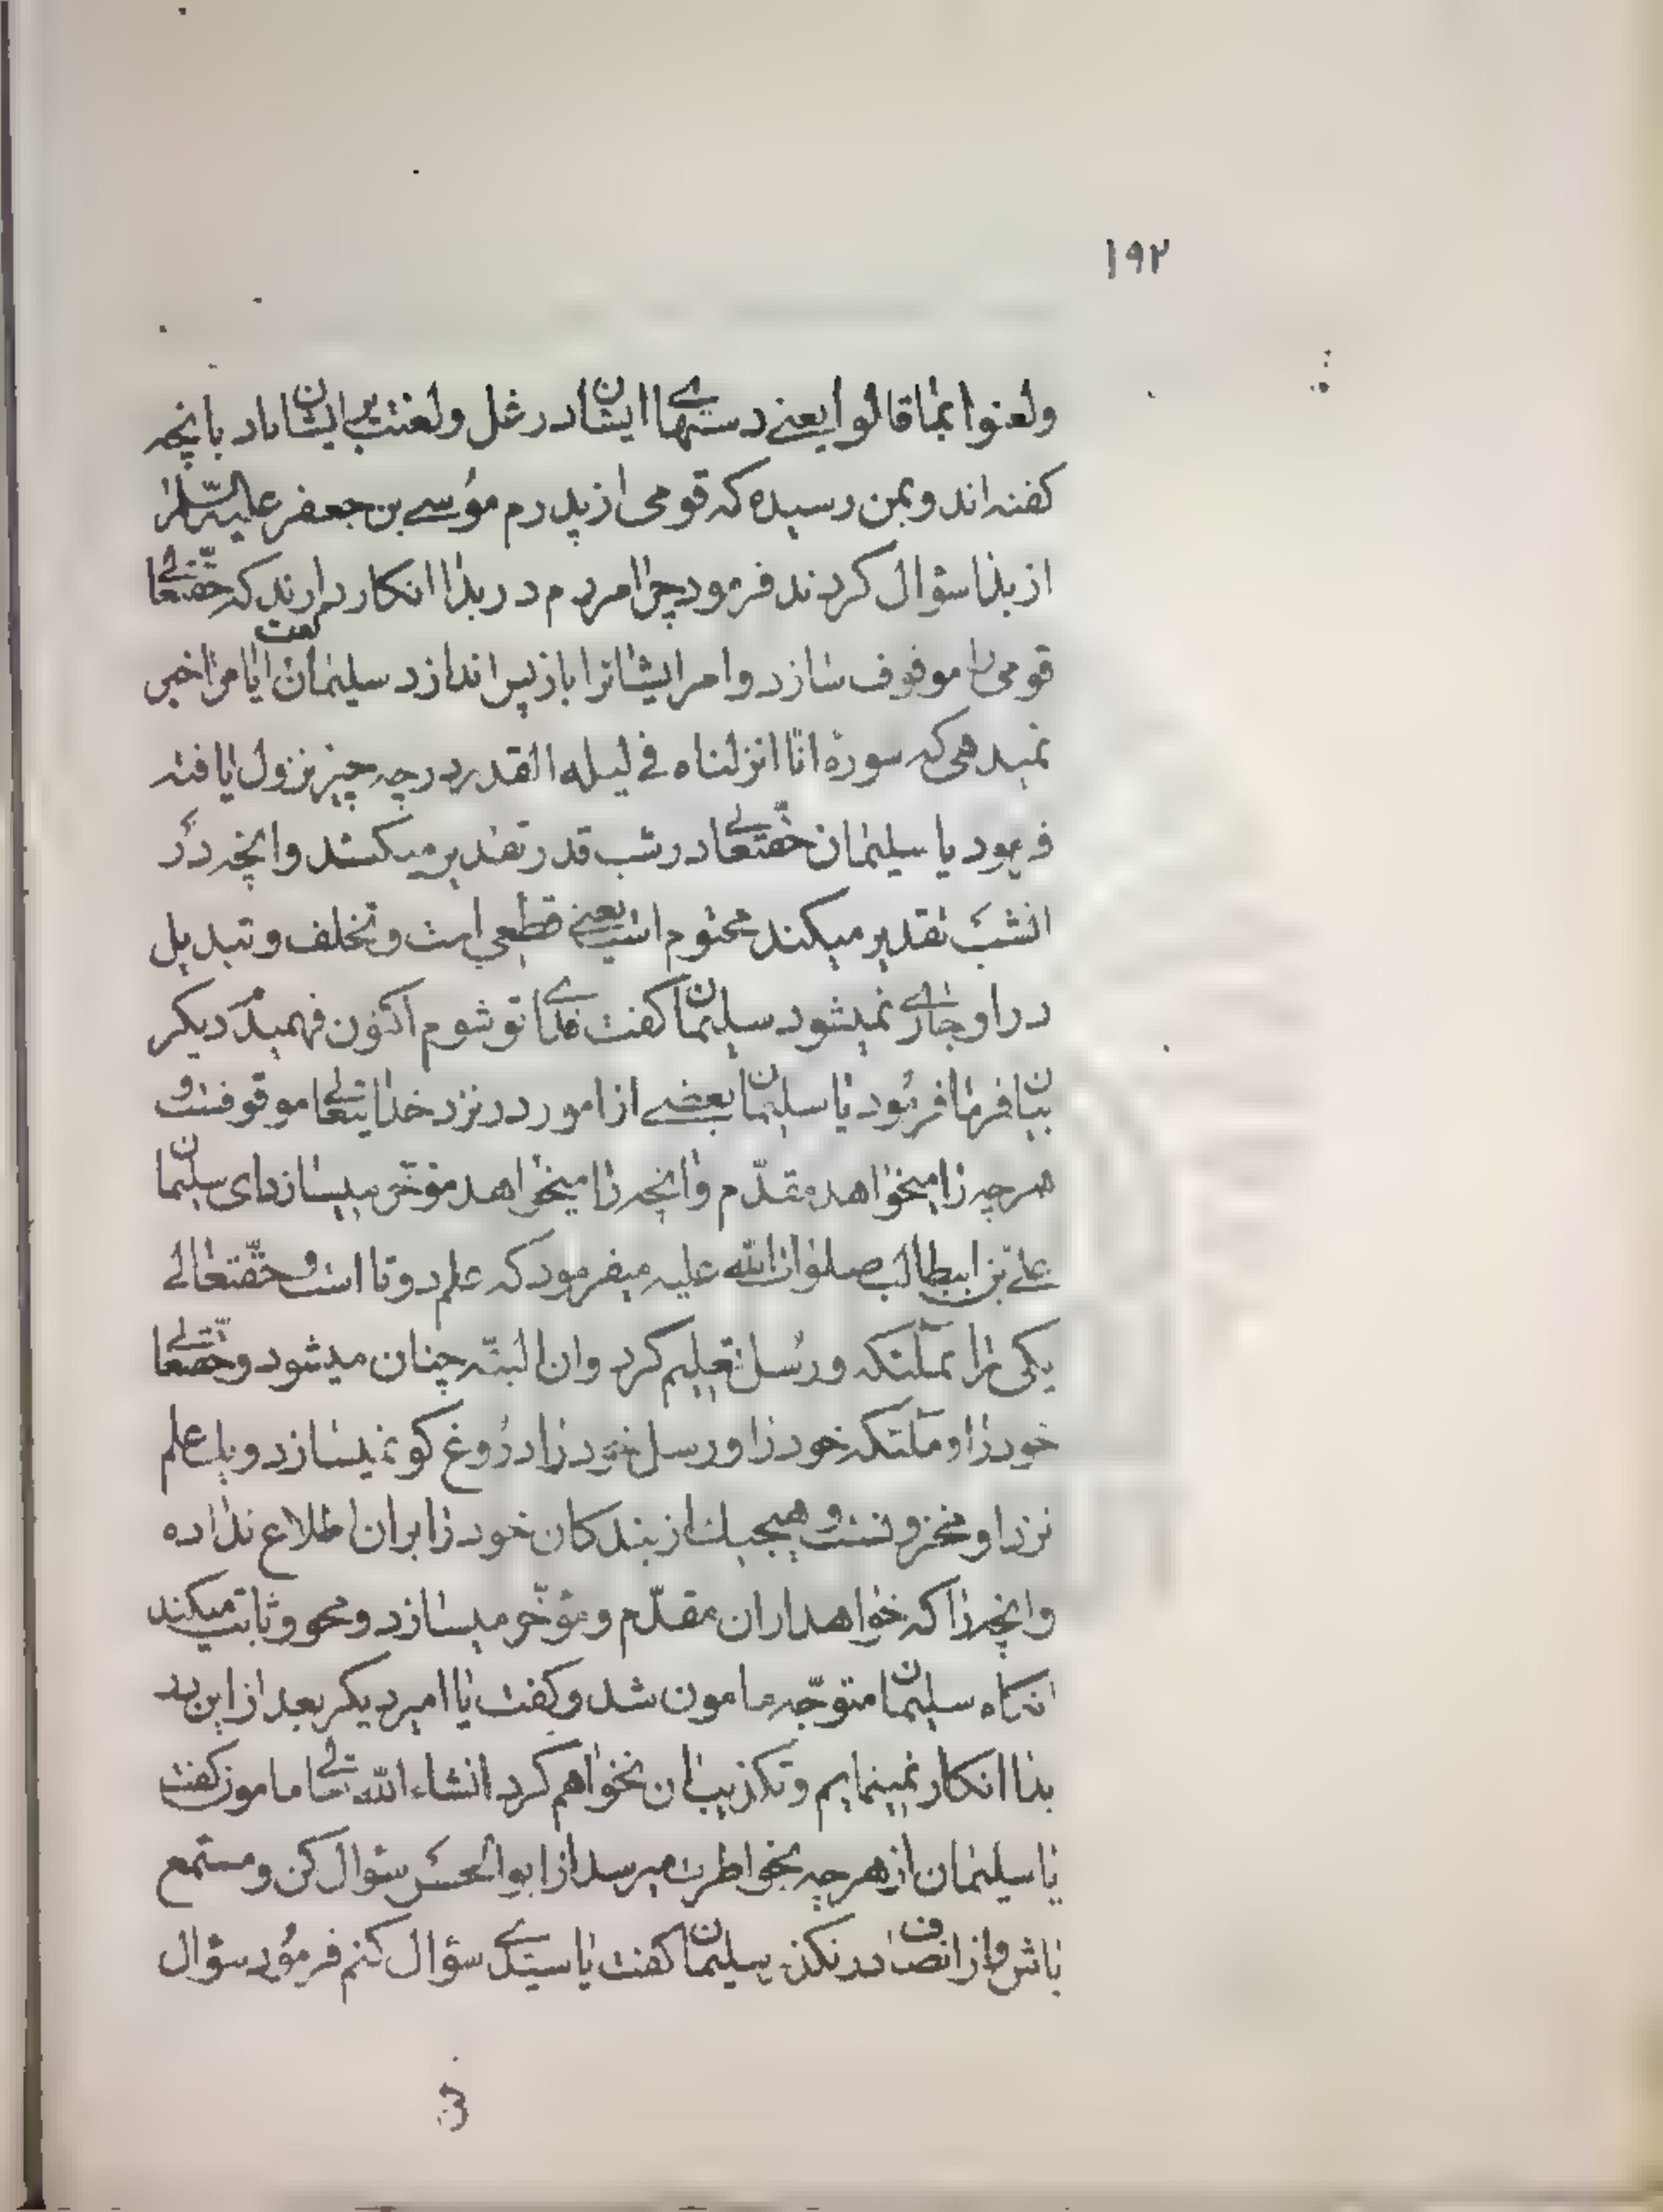 ١٩٢
ولعنوا بما قالوا یعنے دستهاے ایشان در غل ولعنت بر ایشان باد بانچه
کفته اند و بمن رسیده که قومی از پدرم موسے بن جعفر علیه السّلام
از بدا سؤال کردند فرمود چرا مردم در بدا انکار دارند که حقتعالے
قومی را موقوف سازد و امر ایشانرا باز پس اندازد سلیمان کفت ایا مرا خبر
نمیدهی که سورهٔ انّا انزلناه فے لیله القدر در چه چیز نزول یافته
فرمود یا سلیمان حقتعالے در شب قدر تقدیر میکند و انچه در
انشب تقدیر میکند محتوم است یعنے قطعی است و تخلف و تبدیل
در او جارے نمیشود سلیمان کفت فداے تو شوم اکنون فهمیدم دیکر
بیان فرما فرمود یا سلیمان بعضے از امور در نزد خدایتعالے موقوفست و
هرچه را میخواهد مقدّم و انچه را میخواهد مؤخّر میسازد ای سلیمان
علے بن ابیطالب صلوات الله علیه میفرمود که علم دوتا است و حقّتعالے
یکی را بملئکه و رسل تعلیم کرد و ان البتّه چنان میشود و حقتعالے
خود را و ملئکه خود را و رسل خود را دروغ کو نمیسازد و یک علم
نزد او مخزونست و هیچیک از بندکان خود را بران اطلاع نداده
و انچه را که خواهد از ان مقدّم و مؤخّر میسازد و محو و ثابت میکند
انکاه سلیمان متوجّه مامون شد و کفت یا امیر دیکر بعد از این در
بدا انکار نمینمایم و تکذیب ان نخواهم کرد انشاء الله تعالے مامون کفت
یا سلیمان از هرچه بخواطرت میرسد از ابوالحسن سؤال کن و مستمع
باش و از انصاف در نکذر سلیمان کفت یا سیّدے سؤال کنم فرمود سؤال